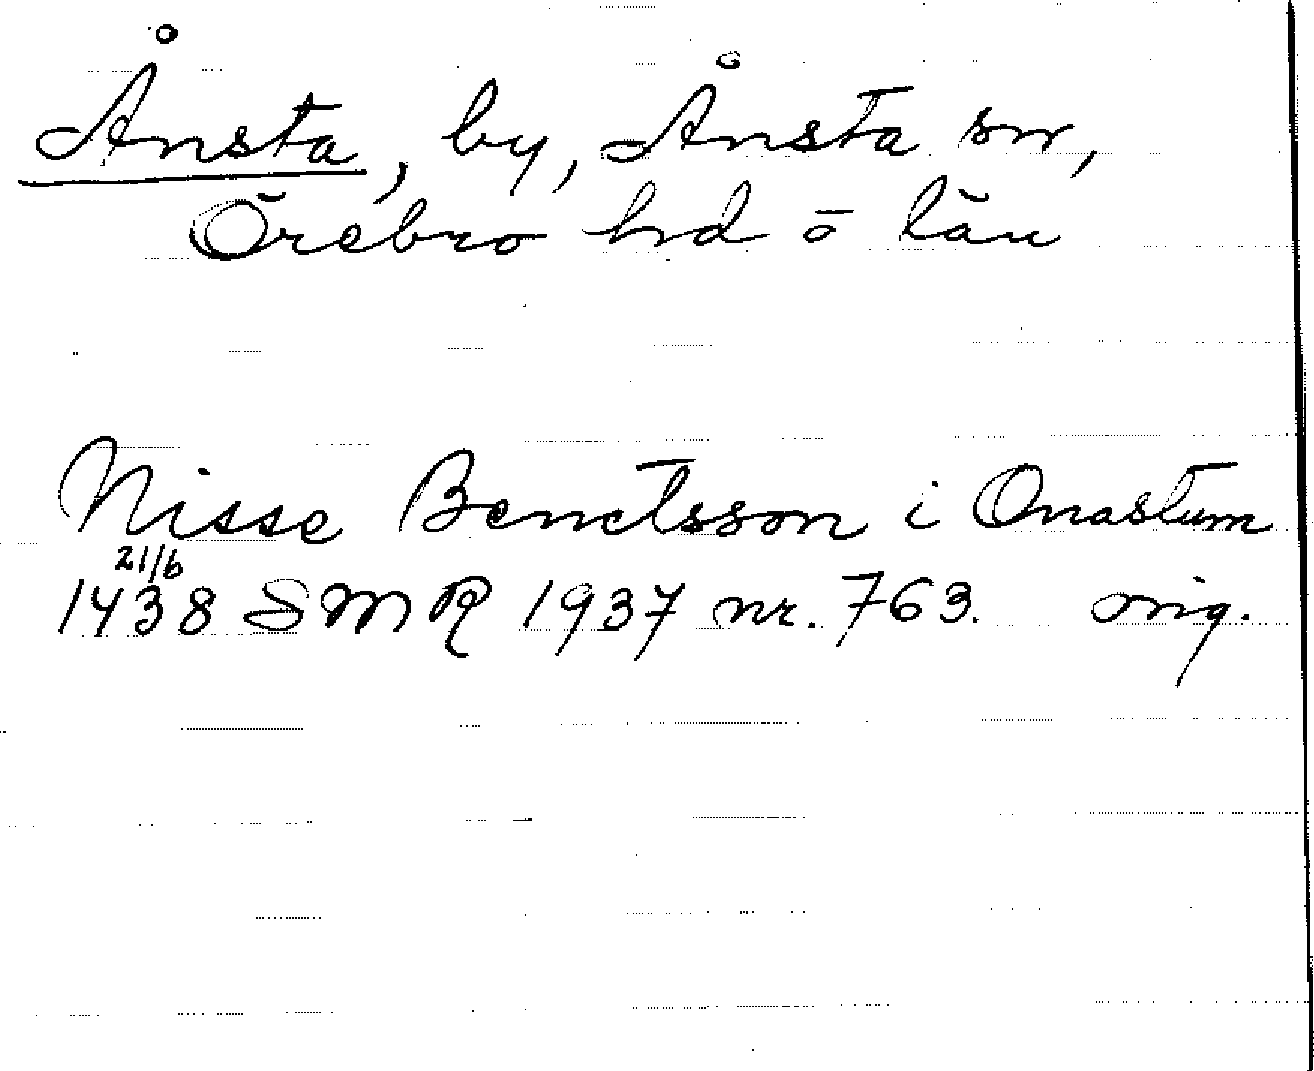 Ånsta, by, Ånsta sn,
Örebro hd o län
Nisse Benctsson i Onastum
21/6
1438 SMR 1937 nr. 763. orig.